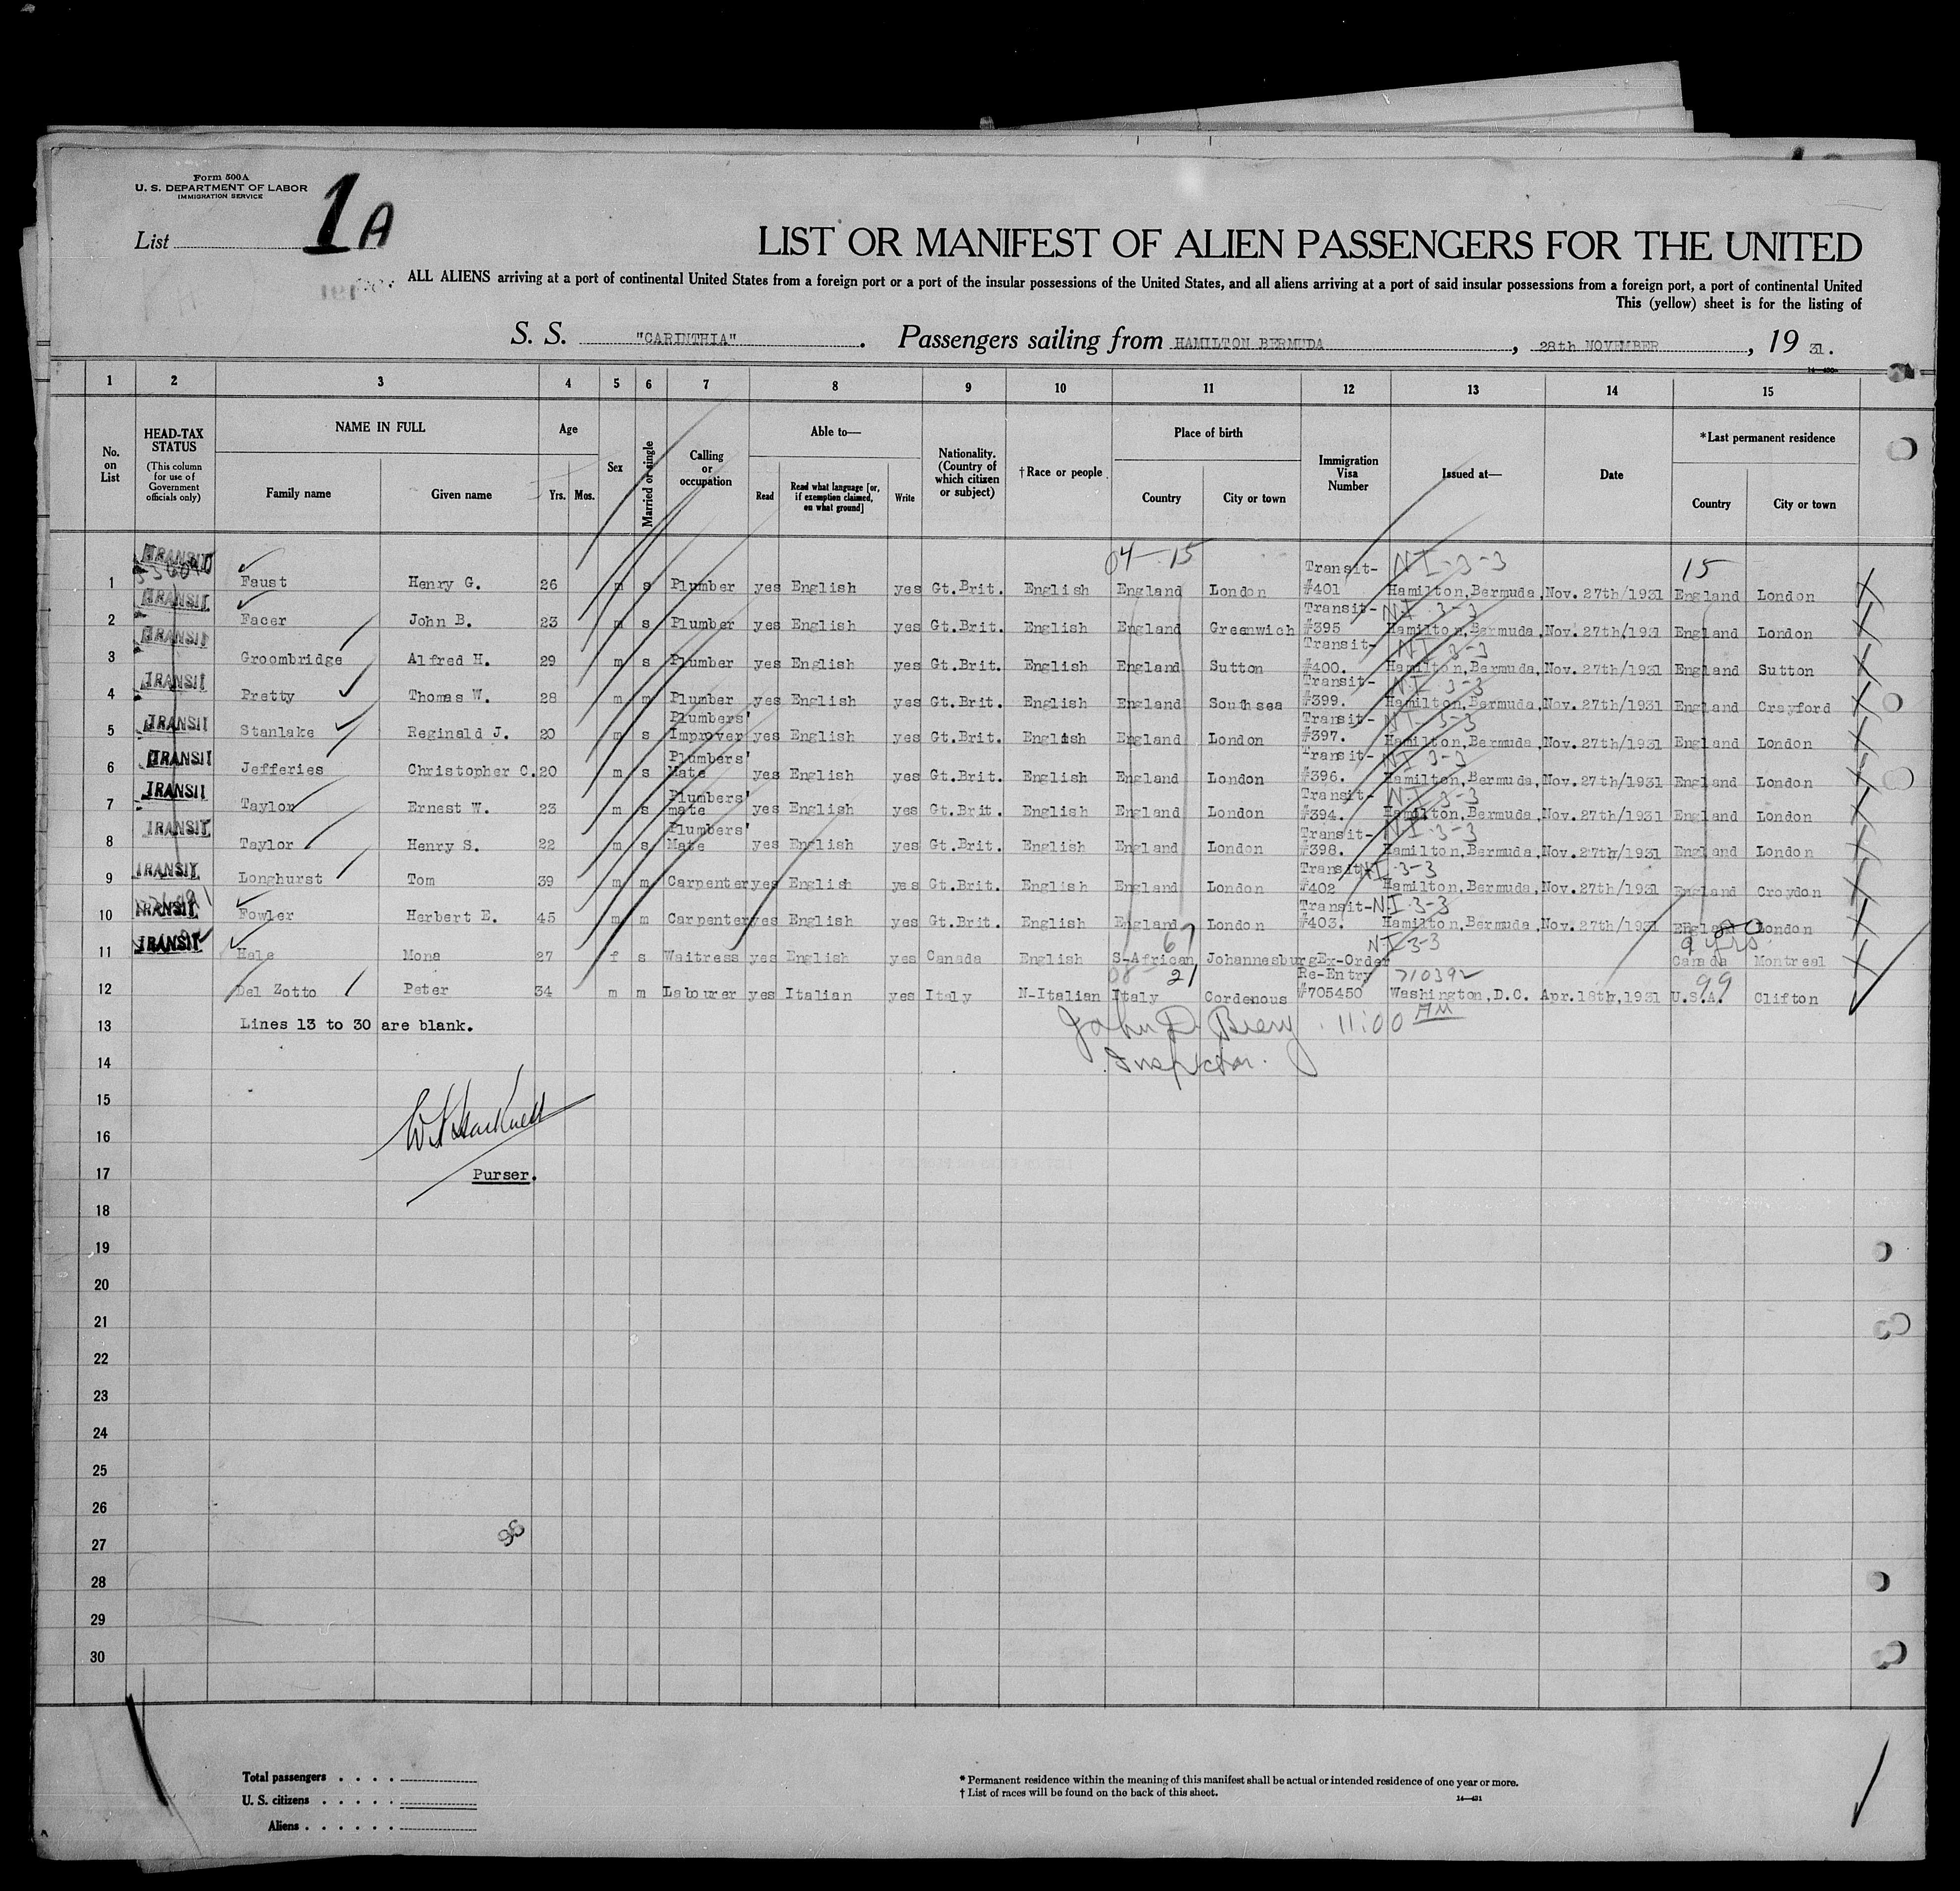 Form 500A
U. S. DEPARTMENT OF LABOR
IMMIGRATION SERVICE
List 1A
LIST OR MANIFEST OF ALIEN PASSENGERS FOR THE UNITED
ALL ALIENS arriving at a port of continental United States from a foreign port or a port of the insular possessions of the United States, and all aliens arriving at a port of said insular possessions from a foreign port, a port of continental United
This (yellow) sheet is for the listing of
S. S. "CARINTHIA". Passengers sailing from HAMILTON BERMUDA, 28th NOVEMBER, 19 31.
1 2 3 4 5 6 7 8 9 10 11 12 13 14 15
No. on List
HEAD-TAX STATUS
(This column for use of Government officials only)
NAME IN FULL
Family name
Given name
Age
Yrs. Mos.
Sex
Married or single
Calling or occupation
Able to—
Read
Read what language [or, if exemption claimed, on what ground]
Write
Nationality. (Country of which citizen or subject)
†Race or people
Place of birth
Country
City or town
Immigration Visa Number
Issued at—
Date
*Last permanent residence
Country
City or town
04-15 15
1 TRANSIT Faust Henry G. 26 m s Plumber yes English yes Gt.Brit. English England London Transit- #401 NI-3-3 Hamilton,Bermuda, Nov. 27th/1931 England London
2 TRANSIT Facer John B. 23 m s Plumber yes English yes Gt.Brit. English England Greenwich Transit- #395 N.I. 3-3 Hamilton,Bermuda, Nov. 27th/1931 England London
3 TRANSIT Groombridge Alfred H. 29 m s Plumber yes English yes Gt.Brit. English England Sutton Transit- #400. NI 3-3 Hamilton,Bermuda, Nov. 27th/1931 England Sutton
4 TRANSIT Pretty Thomas W. 28 m m Plumber yes English yes Gt.Brit. English England Southsea Transit- #399. N.I 3-3 Hamilton,Bermuda, Nov. 27th/1931 England Crayford
5 TRANSIT Stanlake Reginald J. 20 m s Plumbers' Improver yes English yes Gt.Brit. English England London Transit- #397. N.I. 3-3 Hamilton,Bermuda, Nov. 27th/1931 England London
6 TRANSIT Jefferies Christopher C. 20 m s Plumbers' Mate yes English yes Gt.Brit. English England London Transit- #396. NI 3-3 Hamilton,Bermuda, Nov. 27th/1931 England London
7 TRANSIT Taylor Ernest W. 23 m s Plumbers' mate yes English yes Gt.Brit. English England London Transit- #394. N.I 3-3 Hamilton,Bermuda, Nov. 27th/1931 England London
8 TRANSIT Taylor Henry S. 22 m s Plumbers' Mate yes English yes Gt.Brit. English England London Transit- #398. NI-3-3 Hamilton,Bermuda, Nov. 27th/1931 England London
9 TRANSIT Longhurst Tom 39 m m Carpenter yes English yes Gt.Brit. English England London Transit #402 NI-3-3 Hamilton,Bermuda, Nov. 27th/1931 England Croydon
10 TRANSIT Fowler Herbert E. 45 m m Carpenter yes English yes Gt.Brit. English England London Transit- #403. N.I.3-3 Hamilton,Bermuda, Nov. 27th/1931 England London
11 TRANSIT Hale Mona 27 f s Waitress yes English yes Canada English 67 S-African Johannesburg Ex-Order NI 3-3 9 yrs. Canada Montreal
12 Del Zotto Peter 34 m m Labourer yes Italian yes Italy N-Italian 08 21 Italy Cordenous Re-Entry #705450 710392 Washington,D.C. Apr.18th,1931 99 U.S.A. Clifton
13 Lines 13 to 30 are blank.
John D. 11:00 AM
Inspector.
14
15
16
17 Purser.
18
19
20
21
22
23
24
25
26
27
28
29
30
Total passengers
U. S. citizens
Aliens
* Permanent residence within the meaning of this manifest shall be actual or intended residence of one year or more.
† List of races will be found on the back of this sheet.
14—431